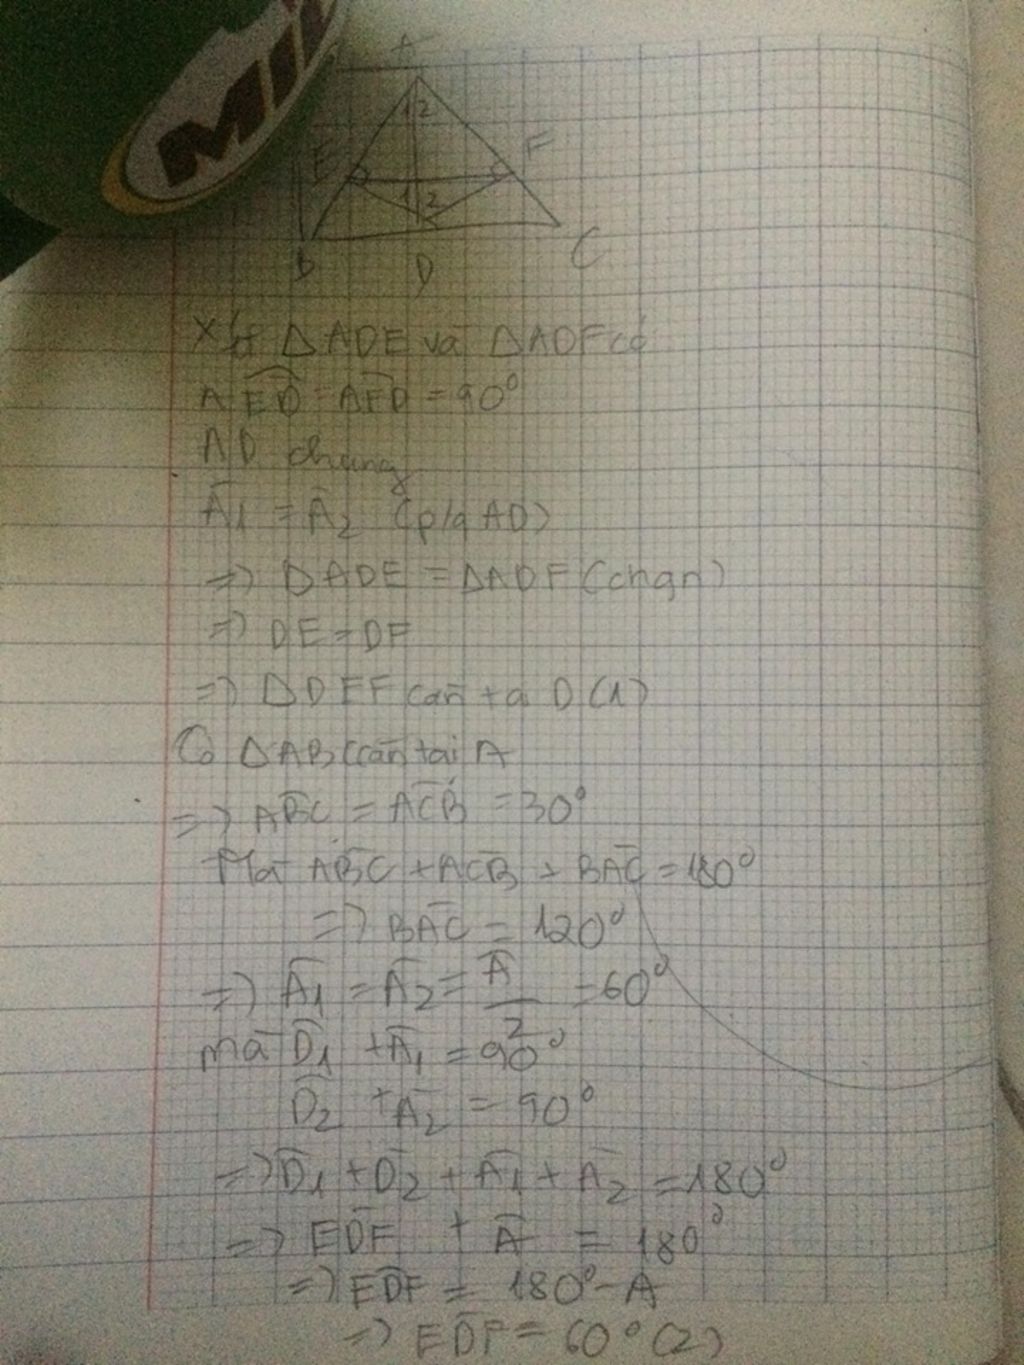 MIL
A
1 2
E
F
1 2
B
D
C
Xét △ADE và △ADF có
AÊD = AF̂D = 90°
AD chung
Â1 = Â2 (p/g AD)
=> △ADE = △ADF (chgn)
=> DE = DF
=> △DEF cân tại D (1)
Có △ABC cân tại A
=> AB̂C = AĈB = 30°
Mà AB̂C + AĈB + BÂC = 180°
=> BÂC = 120°
=> Â1 = Â2 = Â/2 = 60°
mà D̂1 + Â1 = 90°
D̂2 + Â2 = 90°
=> D̂1 + D̂2 + Â1 + Â2 = 180°
=> ED̂F + Â = 180°
=> ED̂F = 180° - A
=> ED̂F = 60° (2)